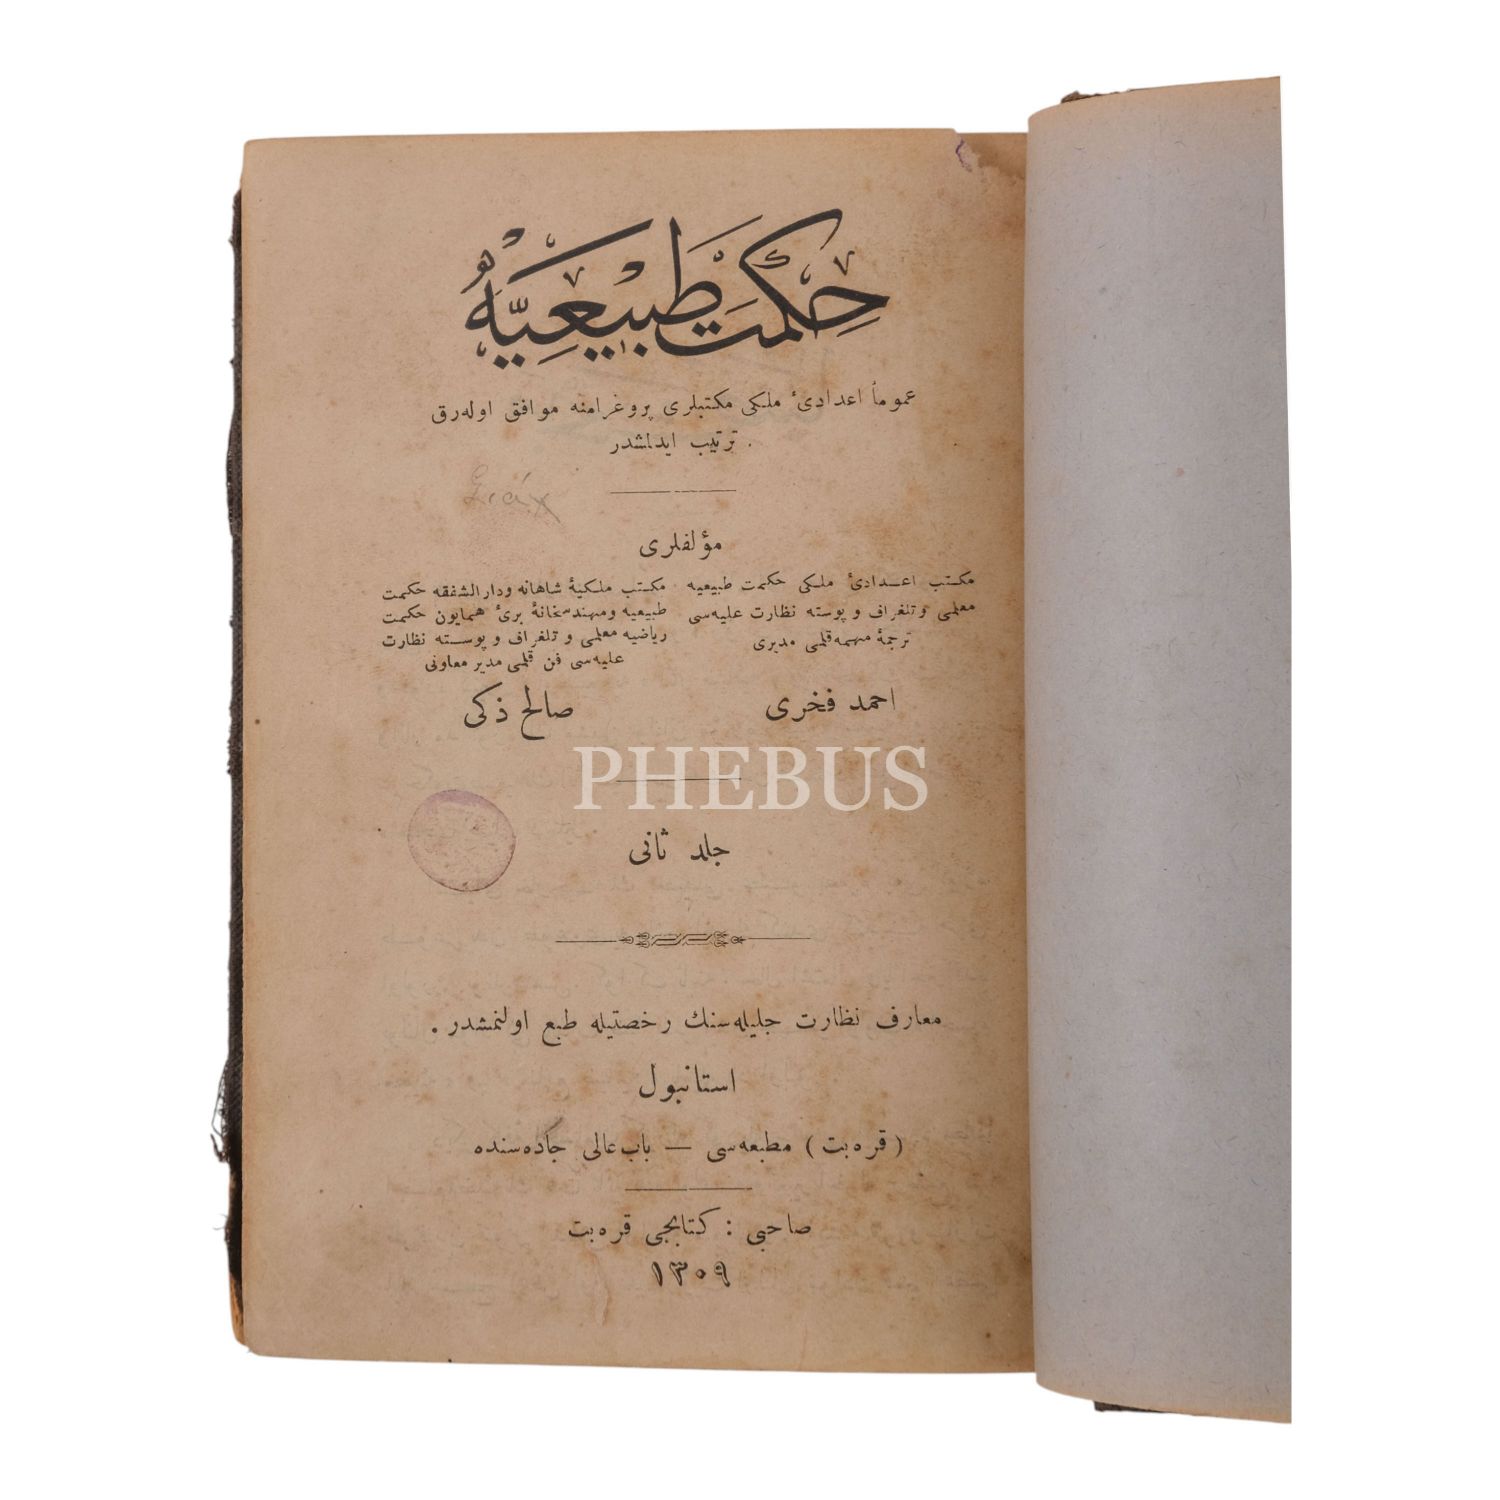 حكمت طبيعيه
عموماً اعدادیٔ ملكی مكتبلری پروغرامنه موافق اوله‌رق
ترتيب ايدلمشدر .
مؤلفلری
مكتب اعــدادیٔ ملكی حكمت طبيعيه
معلمی و تلغراف و پوسته نظارت عليه‌سی
ترجمهٔ مهمه قلمی مديری
احمد فخری
مكتب ملكيهٔ شاهانه ودار الشفقه حكمت
طبيعيه ومهندسخانهٔ بریٔ همايون حكمت
رياضيه معلمی و تلغراف و پوســته نظارت
عليه‌سی فن قلمی مدير معاونی
صالح ذكی
جلد ثانی
معارف نظارت جليله‌سنك رخصتيله طبع اولنمشدر .
استانبول
( قره‌بت ) مطبعه‌سی — باب عالی جاده‌سنده
صاحبی : كتابجی قره‌بت
١٣٠٩
PHEBUS